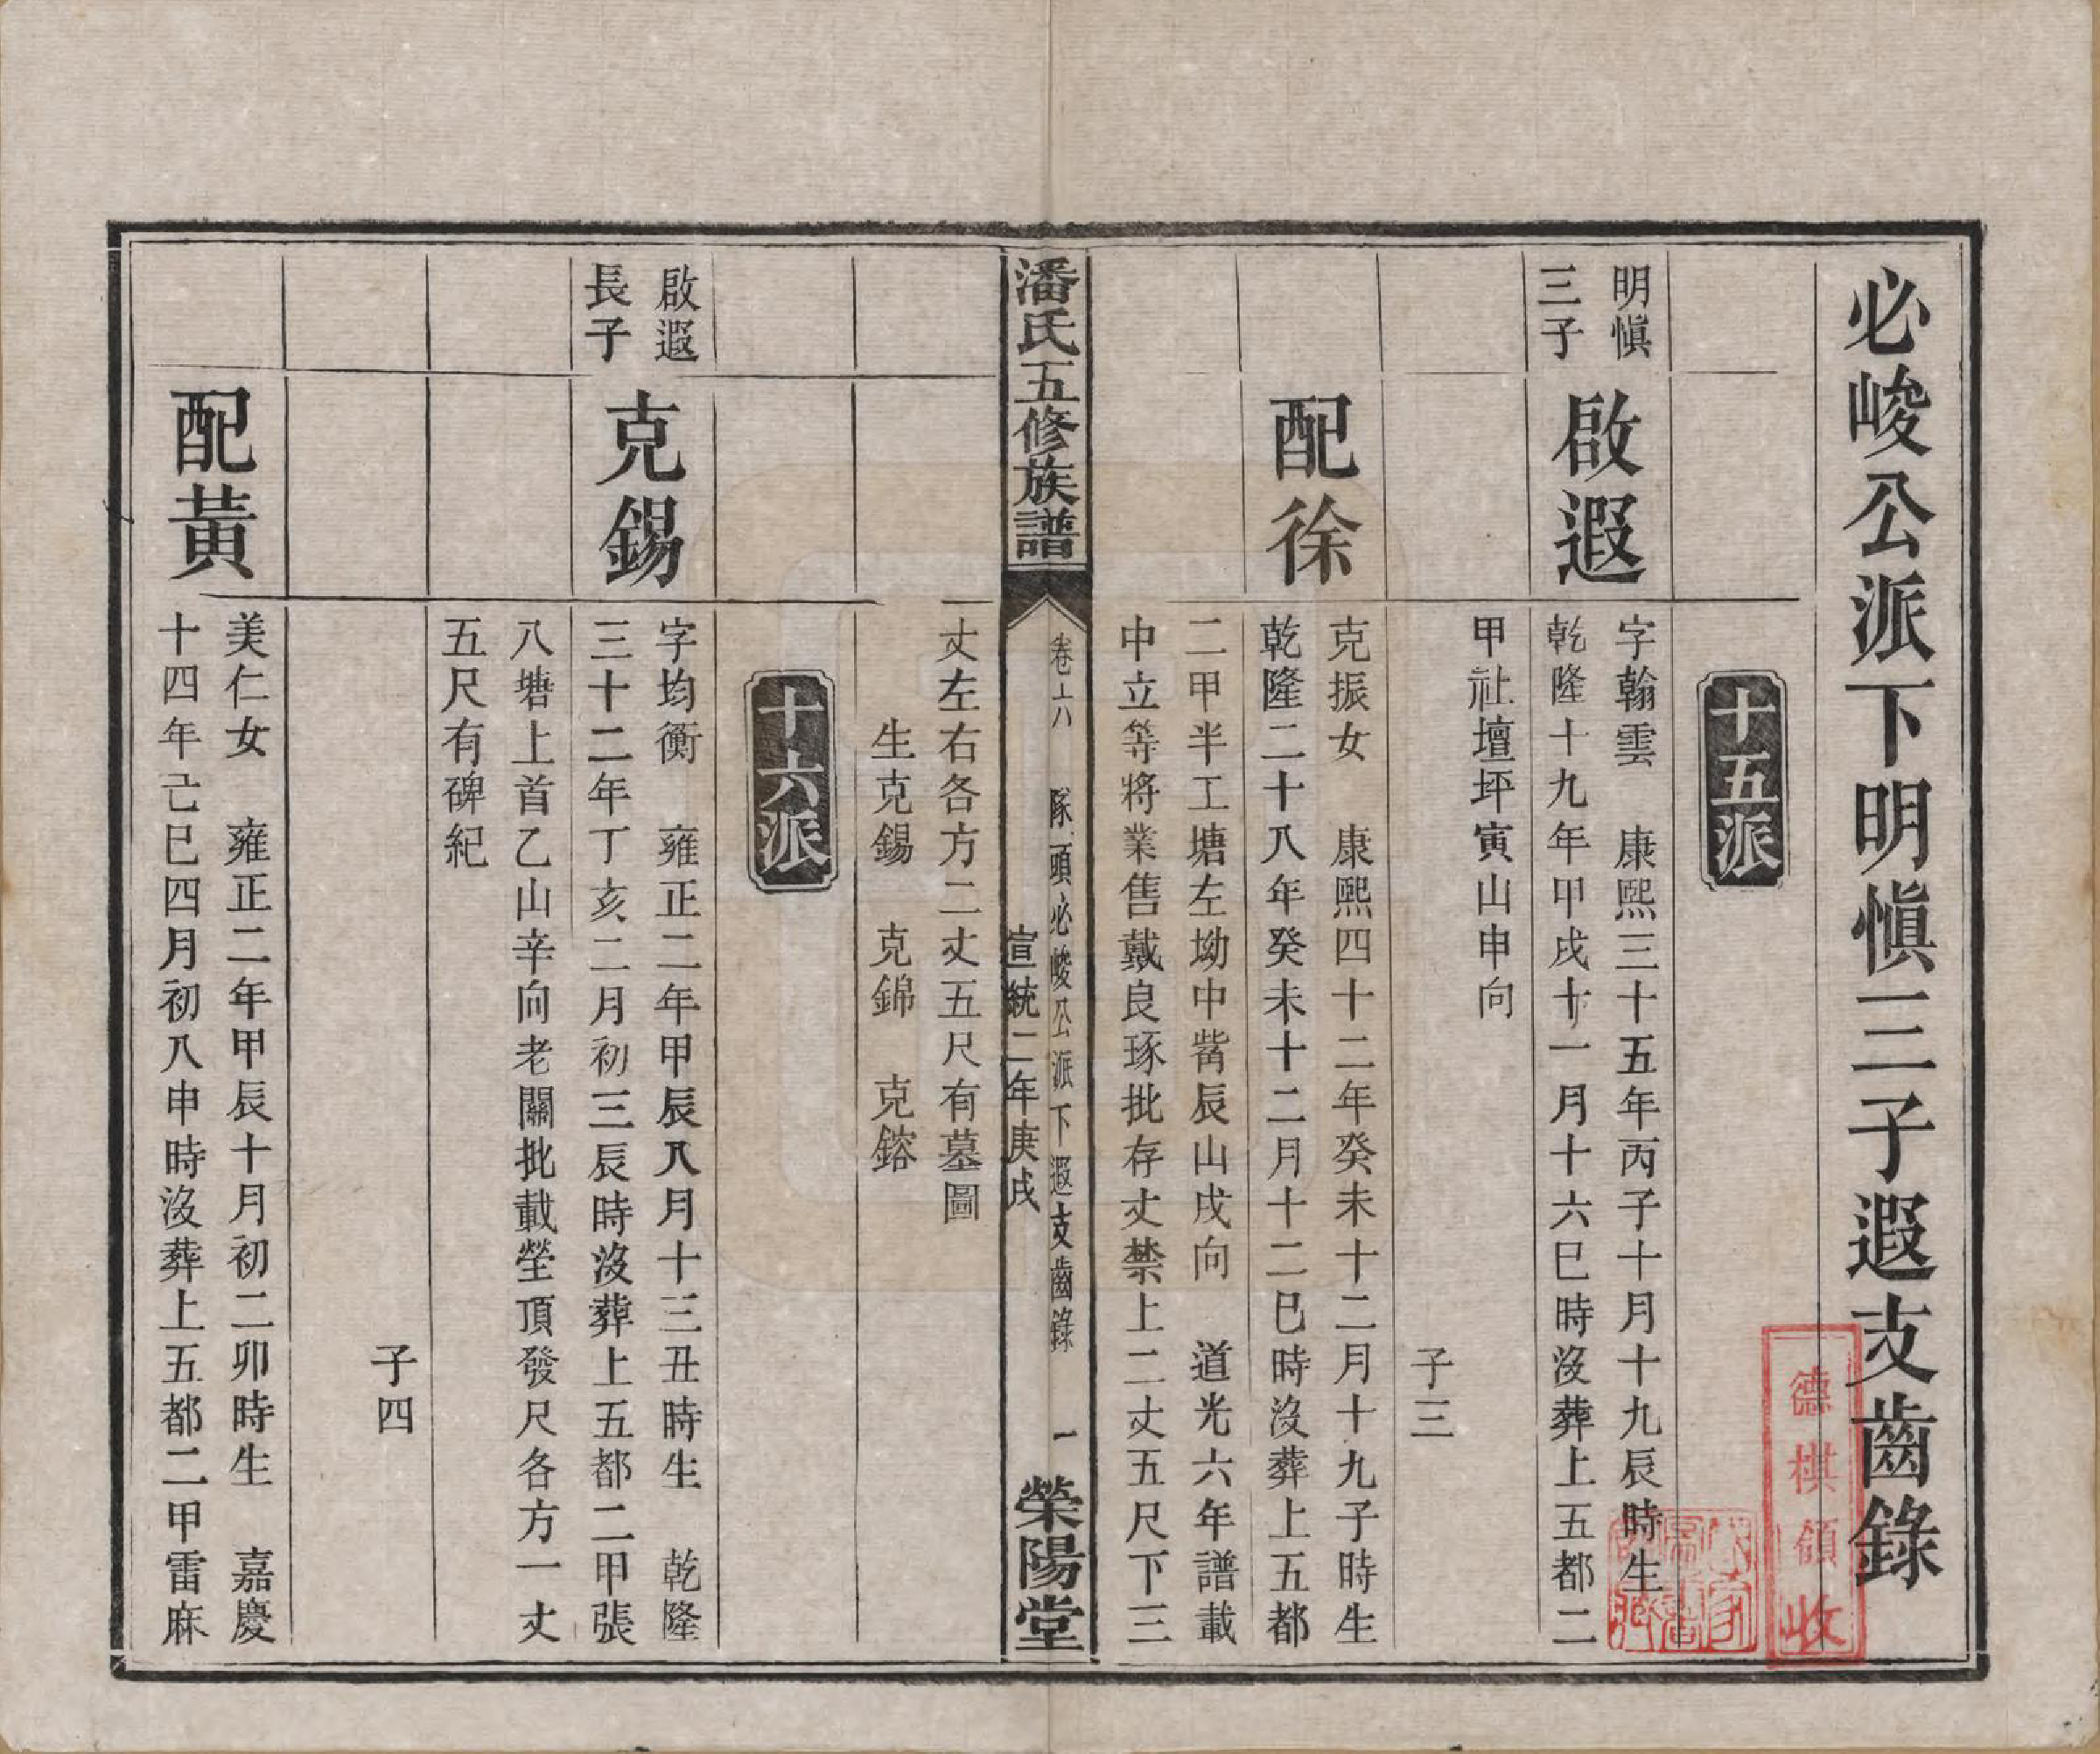 必峻公派下明慎三子遐支齒錄
十五派
明慎
三子
啟遐
字翰雲　康熙三十五年丙子十月十九辰時生
乾隆十九年甲戌十一月十六巳時沒葬上五都二
甲社壇坪寅山申向
子三
配徐
克振女　康熙四十二年癸未十二月十九子時生
乾隆二十八年癸未十二月十二巳時沒葬上五都
二甲半工塘左坳中嘴辰山戌向　道光六年譜載
中立等將業售戴良琢批存丈禁上二丈五尺下三
潘氏五修族譜
卷六　隊頭必峻公派下遐支齒錄　一
宣統二年庚戌
榮陽堂
丈左右各方二丈五尺有墓圖
生克錫　克錦　克鎔
十六派
啟遐
長子
克錫
字均衡　雍正二年甲辰八月十三丑時生　乾隆
三十二年丁亥二月初三辰時沒葬上五都二甲張
八塘上首乙山辛向老關批載塋頂發尺各方一丈
五尺有碑紀
子四
配黃
美仁女　雍正二年甲辰十月初二卯時生　嘉慶
十四年己巳四月初八申時沒葬上五都二甲雷麻
德棋領收